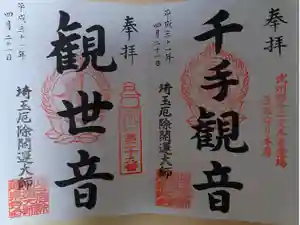 奉拝
平成三十一年
四月二十一日
千手観音
埼玉厄除開運大師
奉拝
平成三十一年
四月二十一日
観世音
埼玉厄除開運大師